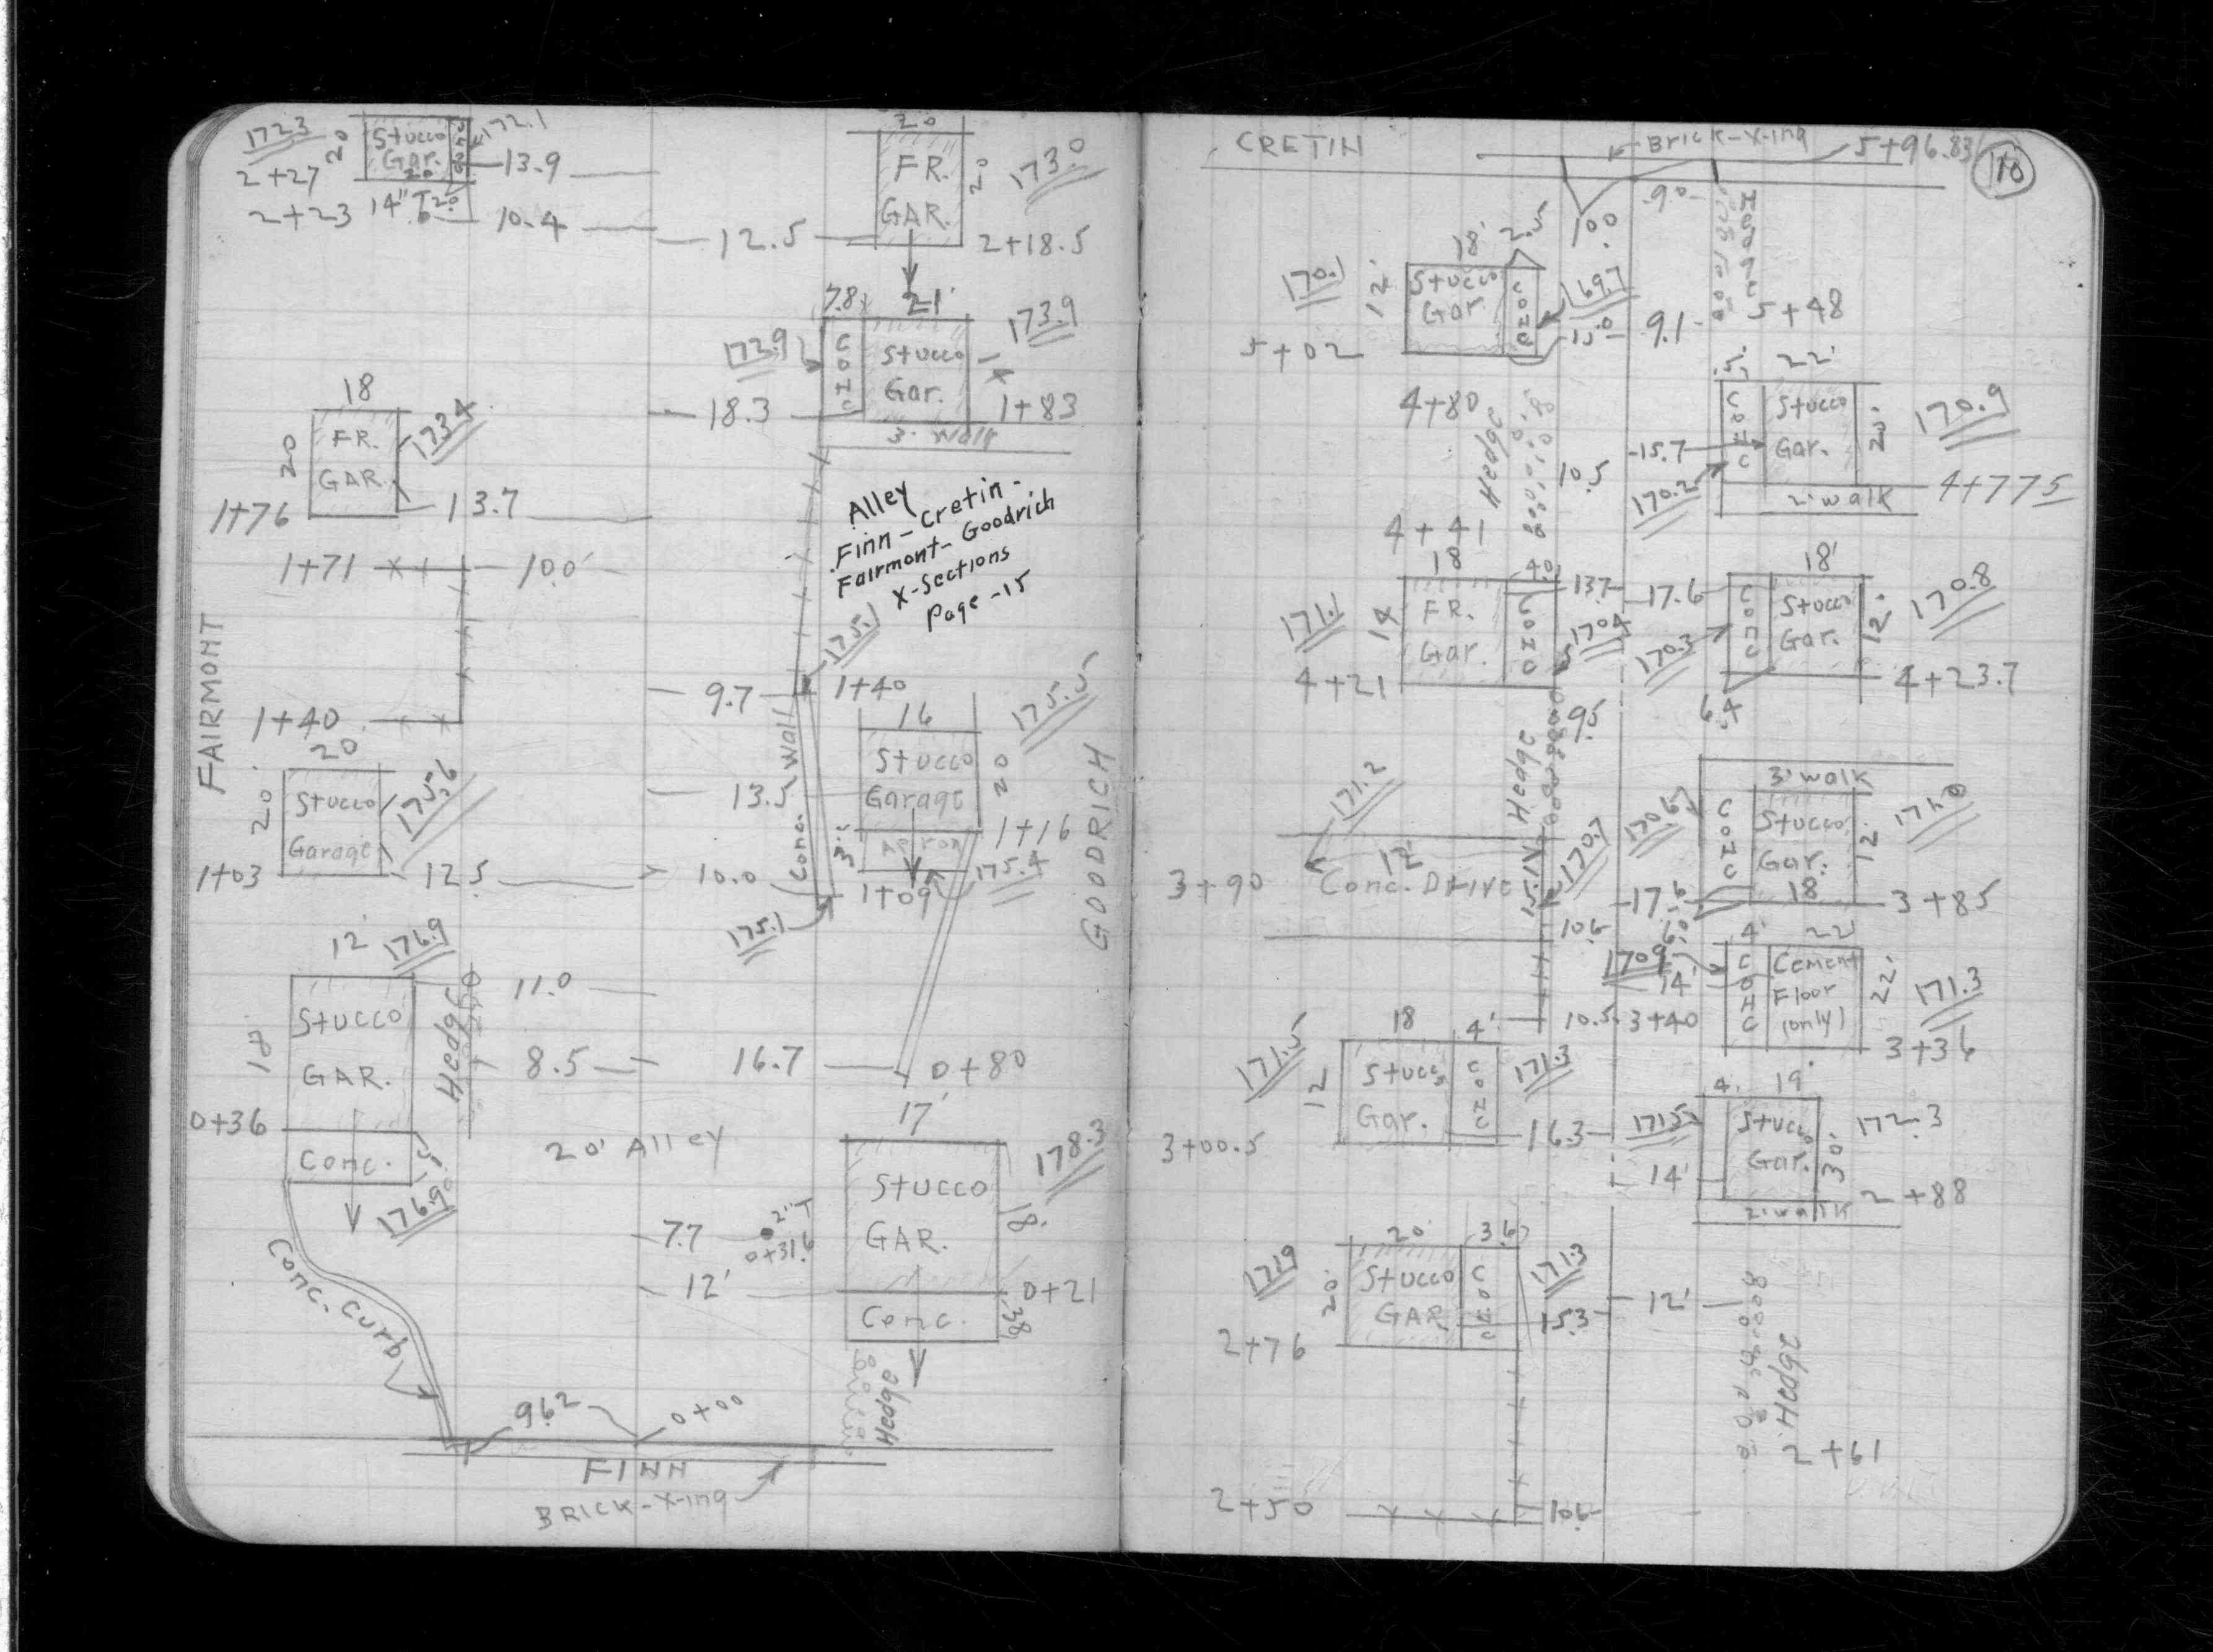 172.3
20
Stucco
Gar.
20
CONC
172.1
2+27
13.9
2+23
14" T
10.4
20
FR.
GAR.
20
173.0
12.5
2+18.5
7.8
21'
172.9
CONC
Stucco
Gar.
173.9
18.3
1+83
3' Walk
18
FR.
GAR.
20
173.4
1+76
13.7
1+71
10.0'
Alley
Finn-Cretin-
Fairmont-Goodrich
X-Sections
Page-15
FAIRMONT
175.1
9.7
1+40
Conc. Wall
1+40
16
175.5
Stucco
Garage
20
13.5
GOODRICH
20
20
Stucco
Garage
175.6
1+03
12.5
10.0
3'
Apron
1+16
1+09
175.4
175.1
12'
176.9
Stucco
GAR.
18
Hedge
11.0
8.5
16.7
0+80
0+36
Conc.
5'
176.9
20' Alley
17'
Stucco
GAR.
18'
178.3
7.7
2" T
0+31.6
12'
0+21
Conc.
38
Conc. Curb
Hedge
9.62
0+00
FINN
BRICK-X-ing
CRETIN
Brick-X-ing
5+96.83
10
9.0
10.0
Hedge
18'
2.5
170.1
12'
Stucco
Gar.
CONC
169.7
15.0
9.1
5+48
5+02
5'
22'
CONC
Stucco
Gar.
20'
170.9
4+80
Hedge
10.5
15.7
170.2
2' walk
4+775
4+41
18
4.0
171.1
14
FR.
Gar.
CONC
13.7
170.4
4+21
17.6
18'
CONC
Stucco
Gar.
12'
170.8
170.3
4+23.7
6.4
9.5
Hedge
171.2
3+90
12'
Conc. Drive
15.1
170.7
10.6
3' walk
170.6
CONC
Stucco
Gar.
12'
18
171.0
17.6
3+85
6.0
4'
22'
170.9
14'
CONC
Cement
Floor
(only)
22'
171.3
3+36
10.5
3+40
18
4'
171.5
12
Stucco
Gar.
CONC
171.3
3+00.5
16.3
4'
19'
171.5
Stucco
Gar.
30'
172.3
14'
2+88
2' walk
20'
3.6
171.9
20'
Stucco
GAR
CONC
171.3
15.3
2+76
12'
Hedge
2+61
2+50
10.6